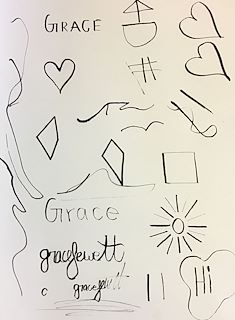 GRACE
Grace
gracejewett
Hi
c gracejewett